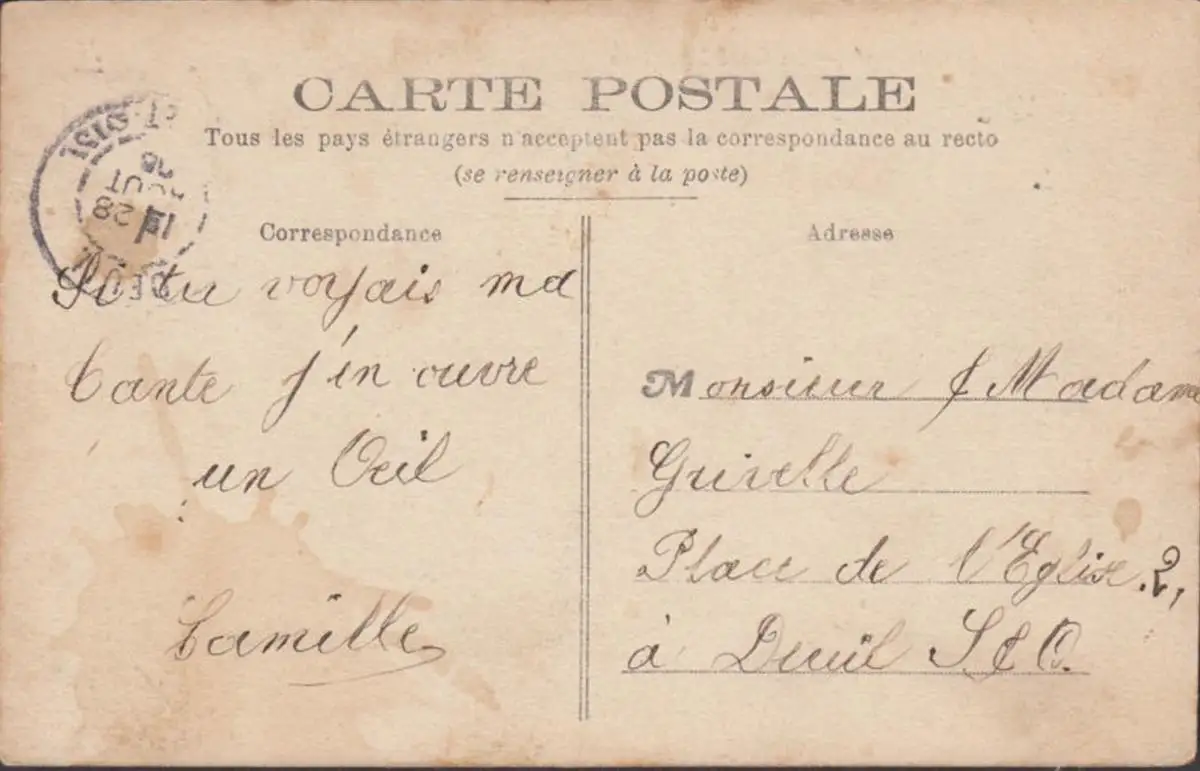 CARTE POSTALE
Tous les pays étrangers n'acceptent pas la correspondance au recto
(se renseigner à la poste)
Correspondance
Si tu voyais ma
tante j'en ouvre
un Oeil
Camille
Adresse
Monsieur & Madame
Grivelle
Place de l'Eglise. 2,
à Deuil S & O.
28
AOUT
DEUIL